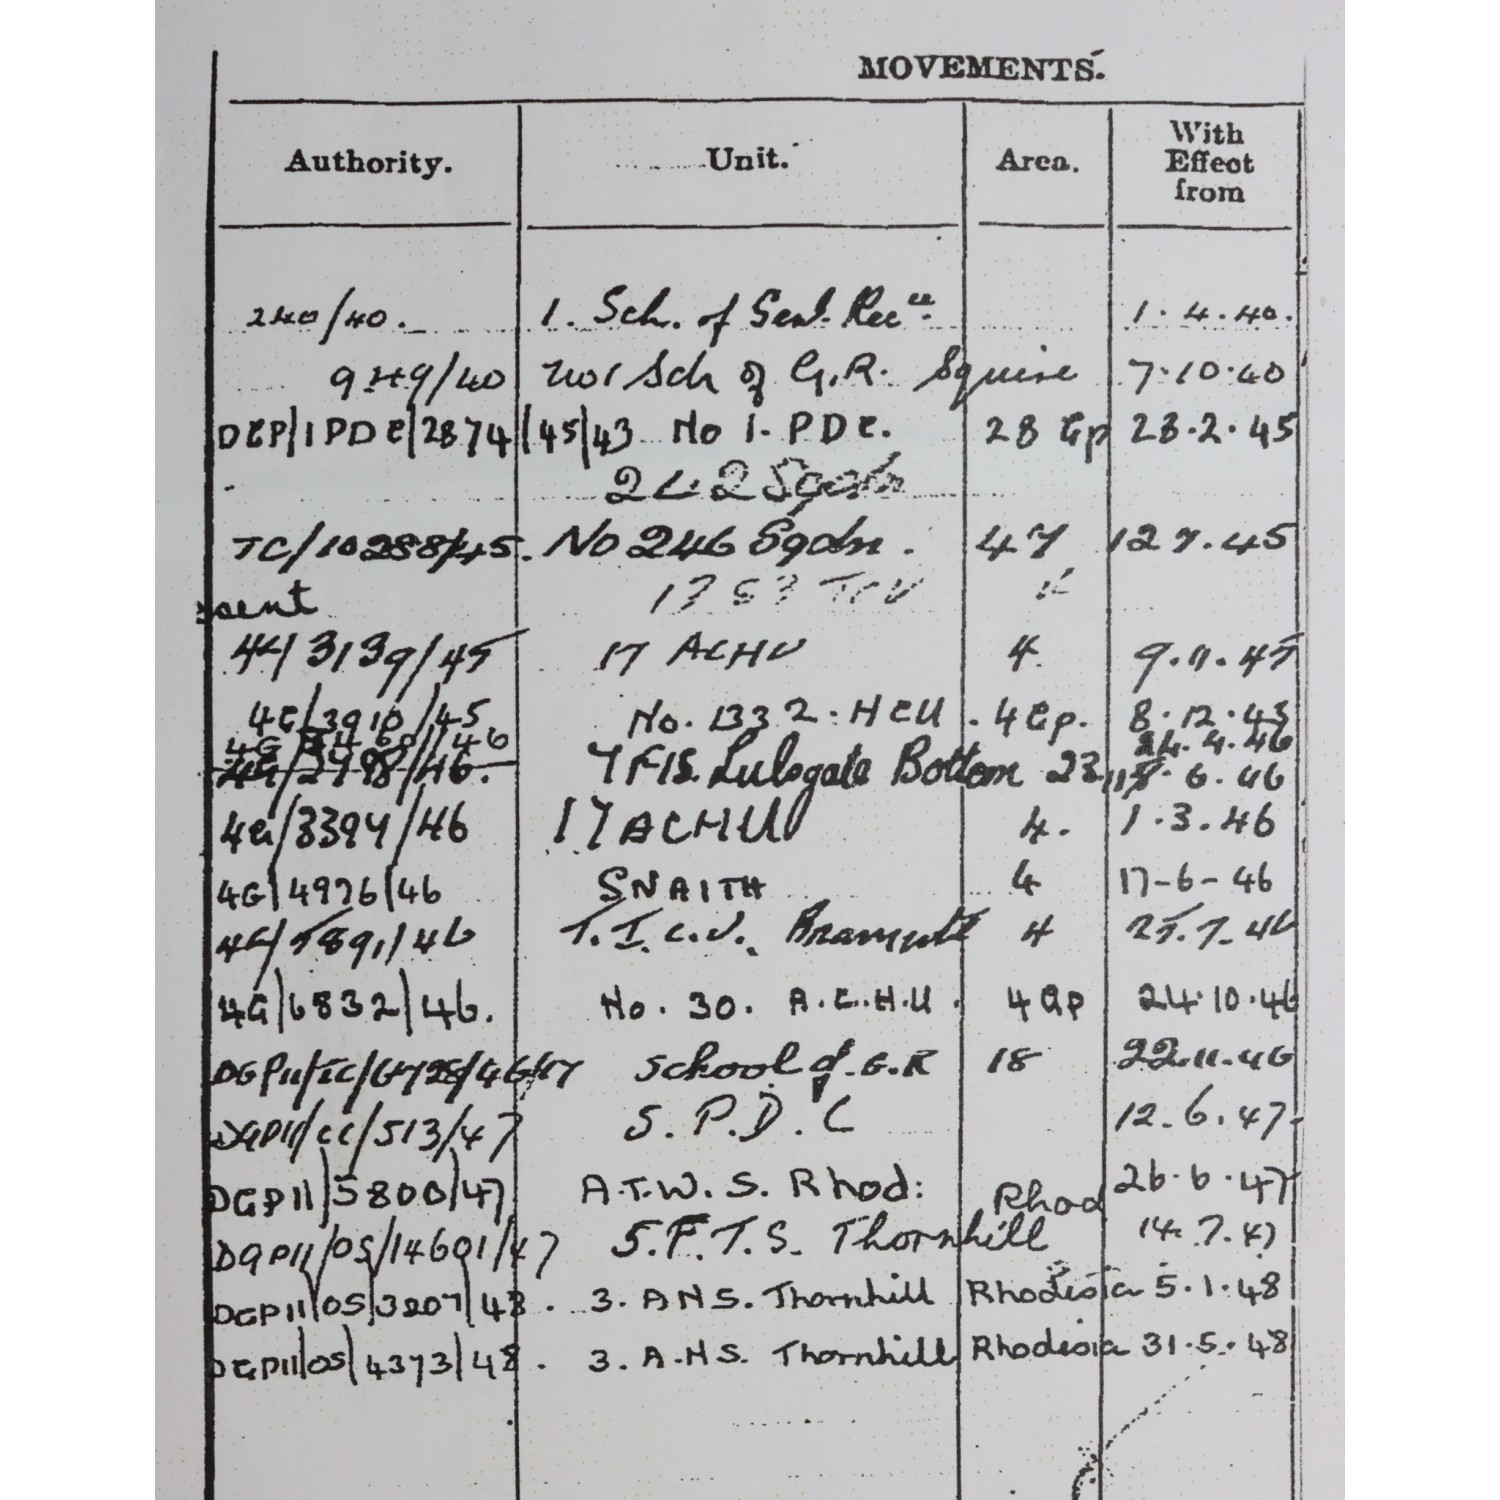 MOVEMENTS.
Authority. Unit. Area. With Effect from
240/40. 1. Sch. of Genl. Rec 1.4.40.
949/40 No 1 Sch of G.R. Squire 7.10.40
DGP/1PDC/2874/45/43 No 1. PDC. 28 Gp 23.2.45
242 Sqdn
TC/10288/45. No 246 Sqdn. 47 12 7.45
sent
4G/3139/45 17 ACHU 4 9.11.45
4G/3910/45 No. 1332. HCU. 4 Gp. 8.12.45
24.4.46
7 FIS. Lulsgate Bottom 23 6.46
4G/3394/46 17 ACHU 4. 1.3.46
4G/4976/46 SNAITH 4 17-6-46
4G/5891/46 T.I.C.U. 4 25.7.46
4G/6832/46. No. 30. A.C.H.U. 4 Gp 24.10.46
DGP11/TC/6728/46/47 School of G.R 18 22.11.46
DGP11/CC/513/47 S.P.D.C 12.6.47
DGP11/5800/47 A.T.W.S. Rhod: Rhod 26.6.47
DGP11/OS/14601/47 5.F.T.S. Thornhill 14.7.47
DGP11/OS/3207/48. 3. ANS. Thornhill Rhodesia 5.1.48
DGP11/OS/4373/48. 3. A.N.S. Thornhill Rhodesia 31.5.48